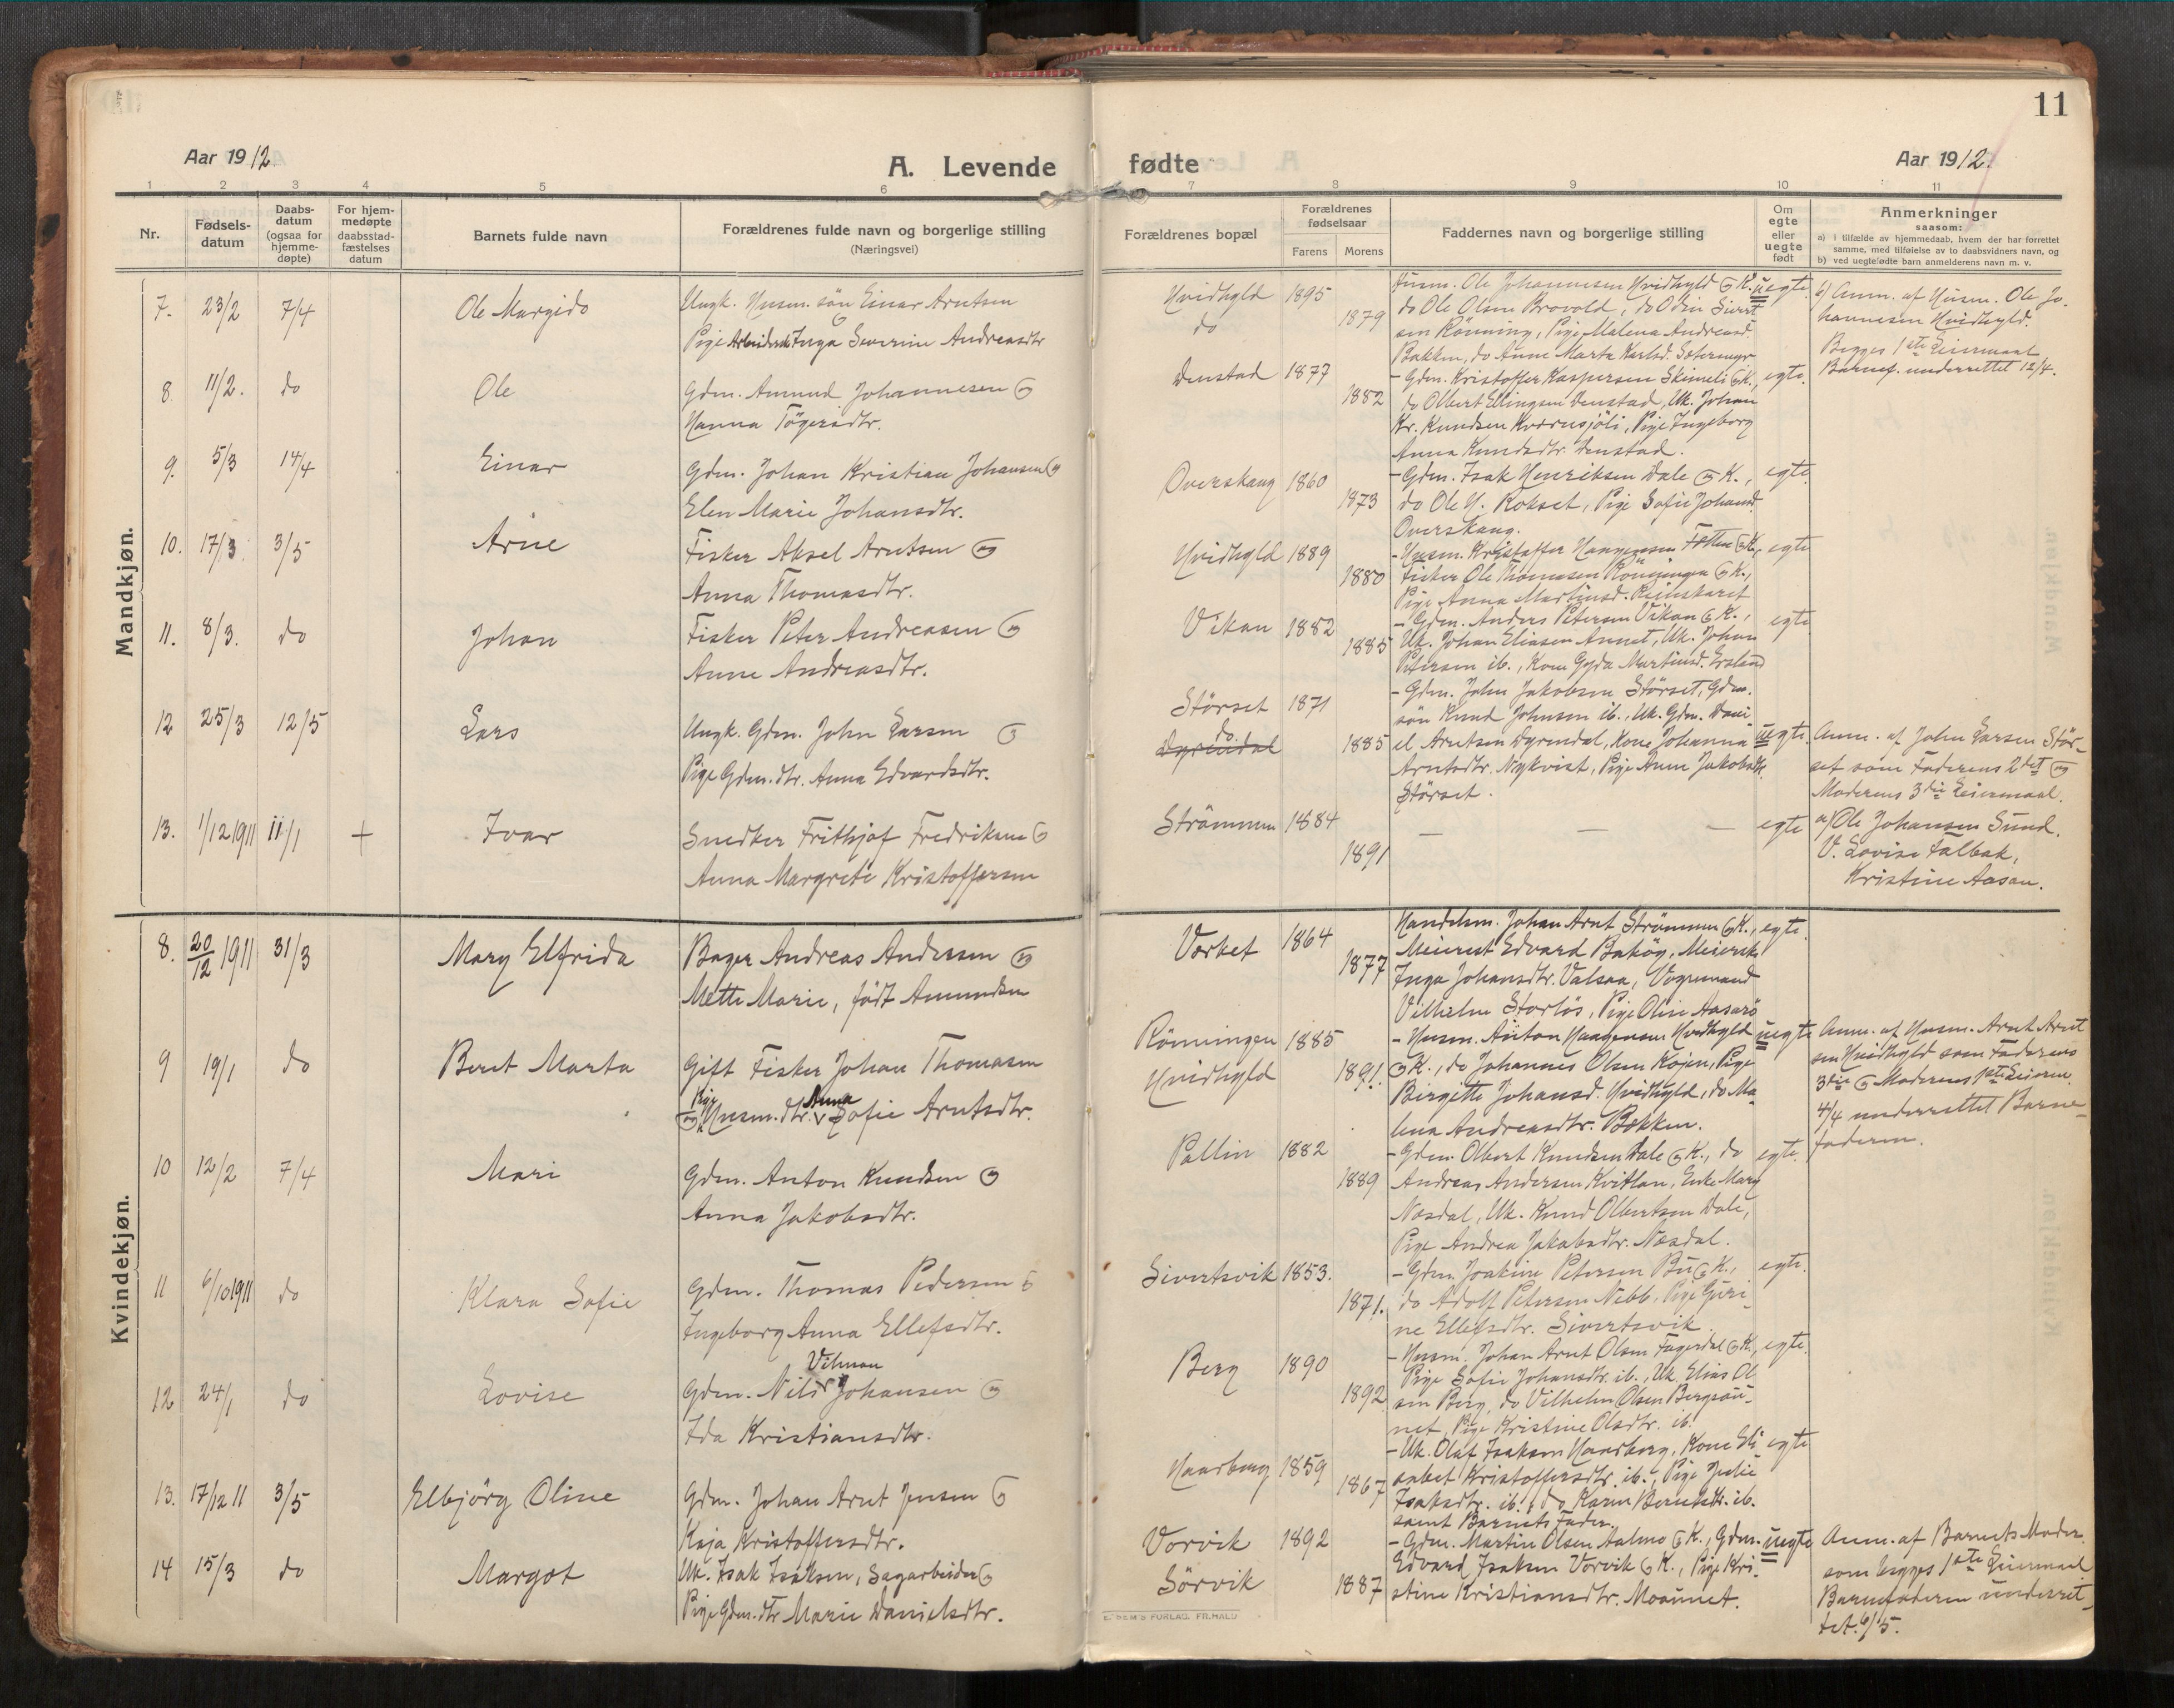 11
Aar 1912
A. Levende fødte
Aar 1912.
1 2 3 4 5 6 7 8 9 10 11
Nr.
Fødsels-
datum
Daabs-
datum
(ogsaa for
hjemme-
døpte)
For hjem-
medøpte
daabsstad-
fæstelses
datum
Barnets fulde navn
Forældrenes fulde navn og borgerlige stilling
(Næringsvei)
Forældrenes bopæl
Forældrenes
fødselsaar
Farens Morens
Faddernes navn og borgerlige stilling
Om
egte
eller
uegte
født
Anmerkninger
saasom:
a) i tilfælde av hjemmedaab, hvem der har forrettet
samme, med tilføielse av to daabsvidners navn, og
b) ved uegtefødte barn anmelderens navn m. v.
Mandkjøn.
7. 23/2 7/4 Ole Margido
Ungk. Husm. søn Einar Arntsen
Pige Arbeidersk Inga Severine Andreasdtr
Hvidhyld 1895
do 1879
Husm. Ole Johannesen Hvidhyld & K.
do Ole Olsen Brovold, do Odin Sivert
sen Rönning, Pige Malena Andreasd.
Bakken, do Anne Marta Karlsd. Sætermyr
uegte
b) Anm. af Husm. Ole Jo-
hannesen Hvidhyld.
Begges 1ste Leiermaal
Barnef. underrettet 12/4.
8. 11/2. do Ole
Gdm. Amund Johannesen &
Hanna Tögersdtr.
Denstad 1877
1882
- Gdm. Kristoffer Kaspersen Skimeli & K.,
do Olbert Ellingsen Denstad, Uk. Johan
Kr. Knudsen Kvernsjöli, Pige Ingeborg
Anna Knudsdtr. Denstad.
egte.
9. 5/3 14/4 Einar
Gdm. Johan Kristian Johansen &
Elen Marie Johansdtr.
Overskaug 1860
1873
- Gdm. Isak Henriksen Dale & K.,
do Ole H. Rokset, Pige Sofie Johansd.
Overskaug.
egte.
10. 17/3. 3/5 Arne
Fisker Aksel Arntsen &
Anna Thomasdtr.
Hvidhyld 1889
1880
- Husm. Kristoffer Haagensen Fætten & K.,
Fisker Ole Thomasen Rönningen & K.,
Pige Anna Martinsd. Reinskaret
egte
11. 8/3. do Johan
Fisker Peter Andreasen &
Anne Andreasdtr.
Vikan 1882
1885
- Gdm. Anders Petersen Vikan & K.,
Uk. Johan Eliasen Aunet, Uk. Johan
Petersen ib., Kone Gyda Martinsd. Ersland
egte
12 25/3 12/5 Lars
Ungk. Gdm. John Larsen &
Pige Gdm. dtr. Anna Edvardsdtr.
Störset 1871
do
Dyrendal 1885
- Gdm. John Jakobsen Störset, Gdm.
søn Knud Johnsen ib., Uk. Gdm. Dani-
el Arntsen Dyrendal, Kone Johanna
Arntsdtr. Nykvist, Pige Anne Jakobsdtr.
Störset.
uegte.
Anm. af John Larsen Stör-
set som Faderens 2det &
Moderens 3die Leiermaal.
13. 1/12 1911 11/1 + Ivar
Snedker Frithjof Fredriksen &
Anna Margrete Kristoffersen
Strömmen 1884
1891
— — —
egte
a) Ole Johansen Sund.
V. Lovise Talbak,
Kristine Aasan.
Kvindekjøn.
8. 20/12 1911 31/3 Mary Elfrida
Bager Andreas Andersen &
Mette Marie, født Amundsen
Værket 1864
1877
Handelsm. Johan Arnt Strömmen & K.,
Meierist Edvard Baköy, Meierske
Inga Johansdtr. Valsaa, Vognmand
Vilhelm Storlös, Pige Oline Aasarö
egte.
9 19/1 do Beret Marta
Gift Fisker Johan Thomasen
Pige Anna
& Husm. dtr. v Sofie Arntsdtr.
Rönningen 1885
Hvidhyld 1891.
- Husm. Anton Haagensen Hvidhyld
& K., do Johannes Olsen Kojen, Pige
Birgitte Johansd. Hvidhyld, do Ma-
lena Andreasdtr. Bakken.
uegte
Anm. af Husm. Arnt Arnt
sen Hvidhyld som Faderens
3die & Moderens 1ste Leierm.
4/4 underrettet Barne-
faderen.
10 12/2 7/4 Mari
Gdm. Anton Knudsen &
Anna Jakobsdtr.
Pallin 1882
1889
- Gdm. Olbert Knudsen Dale & K., do
Andreas Andersen Kvitlan, Enke Mary
Næsdal, Uk. Knud Olbertsen Dale,
Pige Andrea Jakobsdtr. Næsdal.
egte.
11 6/10 1911 do Klara Sofie
Gdm. Thomas Pedersen &
Ingeborg Anna Ellefsdtr.
Sivertsvik 1853.
1871.
- Gdm. Joakim Petersen Bu & K.,
do Adolf Petersen Nebb, Pige Guri-
ne Ellefsdtr. Sivertsvik.
egte.
12 24/1 do Lovise
Vilman
Gdm. Nils v Johansen &
Ida Kristiansdtr.
Berg 1890
1892
- Husm. Johan Arnt Olsen Fagerdal & K.,
Pige Sofie Johansdtr. ib., Uk. Elias Ol
sen Berg, do Vilhelm Olsen Bergsau-
net, Pige Kristine Olsdtr. ib.
egte.
13. 17/12 11 3/5 Elbjörg Oline
Gdm. Johan Arnt Jensen &
Kaja Kristoffersdtr.
Haarberg 1859
1867
- Uk. Olaf Isaksen Haarberg, Kone Eli
sabet Kristoffersdtr. ib., Pige Julie
Isaksdtr. ib., do Karen Berntsdtr. ib.
samt Barnets Fader.
egte
14 15/3 do Margot
Uk. Isak Isaksen, Sagarbeider &
Pige Gdm. dtr. Marie Danielsdtr.
Vorvik 1892
Sörvik 1887
- Gdm. Martin Olsen Aalmo & K., Gdm.
Edvard Isaksen Vorvik & K., Pige Kri-
stine Kristiansdtr. Moaunet.
uegte
Anm. af Barnets Moder
som begges 1ste Leiermaal
Barnefaderen underret-
tet 6/5.